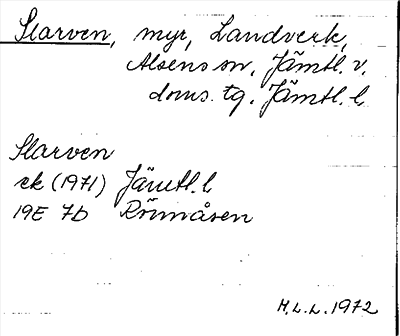 Slarven, myr, Landverk,
Alsens sn, Jämtl. v.
doms. tg, Jämtl. l.
Slarven
ek (1971) Jämtl. l
19E 7b Rönnåsen
M.L.L. 1972